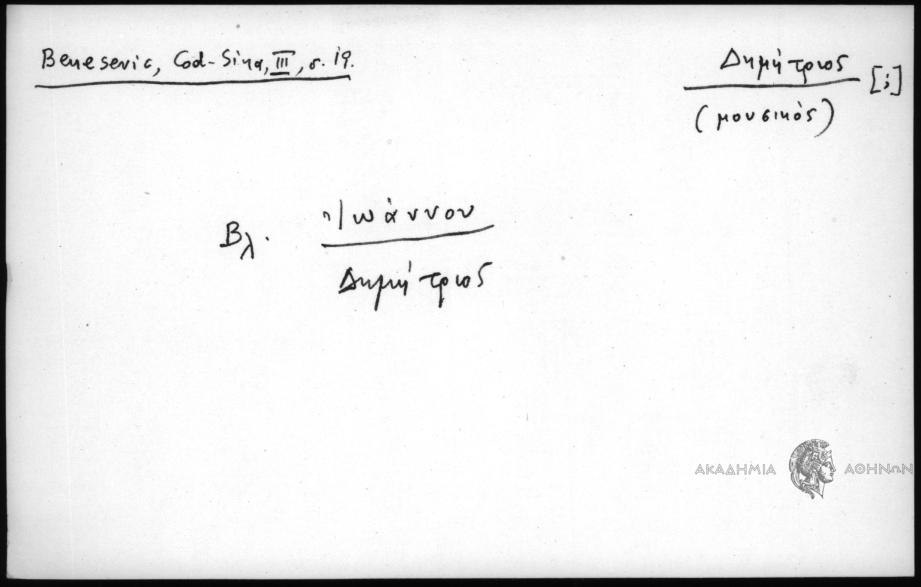 Benesevic, Cod-Sina, III, σ. 19.
Δημήτριος [;]
(μουσικός)
Βλ. Ἰωάννου
Δημήτριος
ΑΚΑΔΗΜΙΑ ΑΘΗΝΩΝ